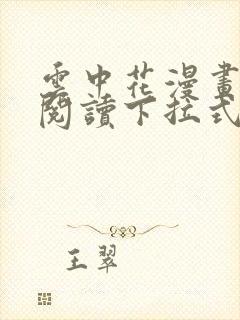 雲中花漫畫
閱讀下拉式
王翠